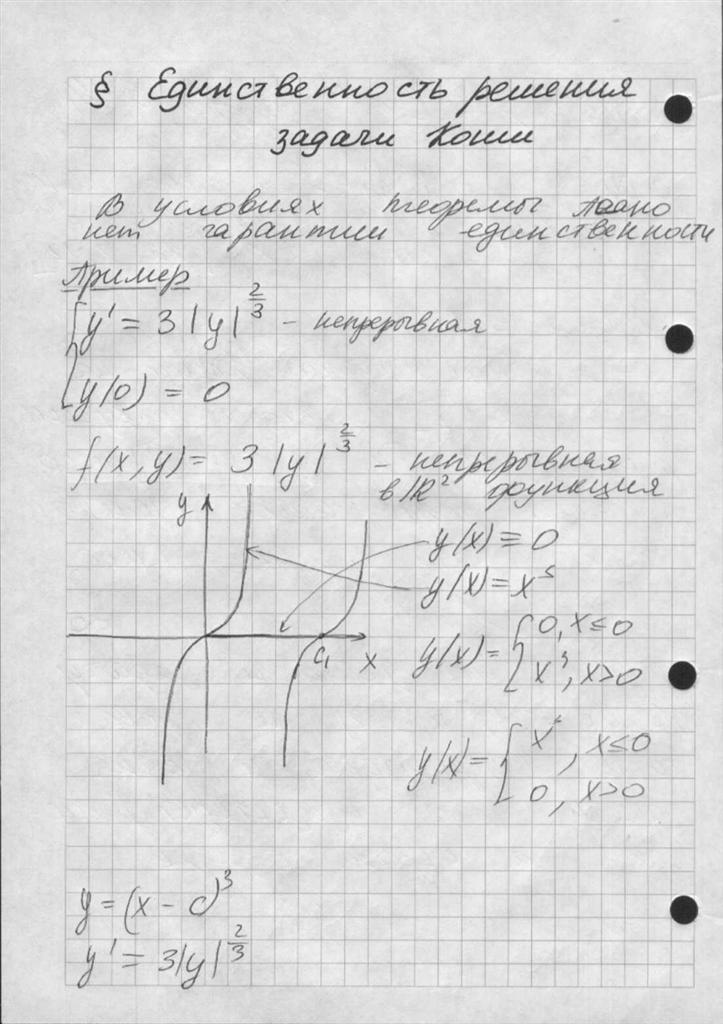 § Единственность решения
задачи Коши
В условиях теоремы Пеано
нет гарантии единственности
Пример
{ y' = 3|y|^{2/3} – непрерывная
y(0) = 0
f(x,y) = 3|y|^{2/3} – непрерывная
в ℝ² функция
y
y(x) ≡ 0
y(x) = x³
y(x) = { 0, x ≤ 0
x³, x > 0
C₁ x
y(x) = { x³, x ≤ 0
0, x > 0
y = (x – c)³
y' = 3|y|^{2/3}